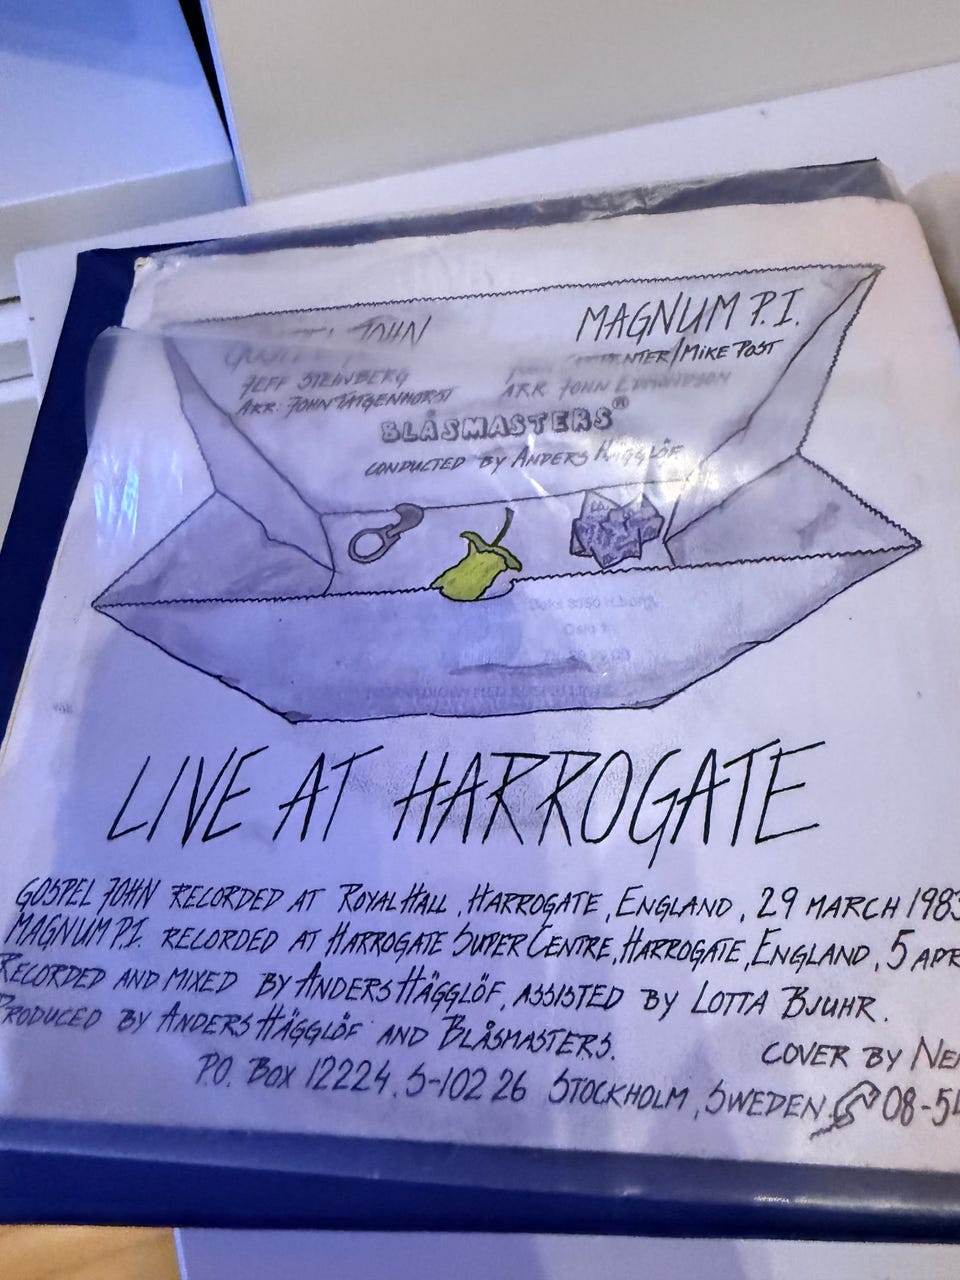 JOHN
MAGNUM P.I.
JEFF STEINBERG
/MIKE POST
ARR: JOHN TATGENHORST
ARR JOHN EDMONDSON
BLÅSMASTERS®
CONDUCTED BY ANDERS HÄGGLÖF
LIVE AT HARROGATE
GOSPEL JOHN RECORDED AT ROYAL HALL, HARROGATE, ENGLAND, 29 MARCH 1983
MAGNUM P.I. RECORDED AT HARROGATE SUPER CENTRE, HARROGATE, ENGLAND, 5 APR
RECORDED AND MIXED BY ANDERS HÄGGLÖF, ASSISTED BY LOTTA BJUHR.
PRODUCED BY ANDERS HÄGGLÖF AND BLÅSMASTERS.
COVER BY NE
P.O. BOX 12224, S-102 26 STOCKHOLM, SWEDEN. 08-54